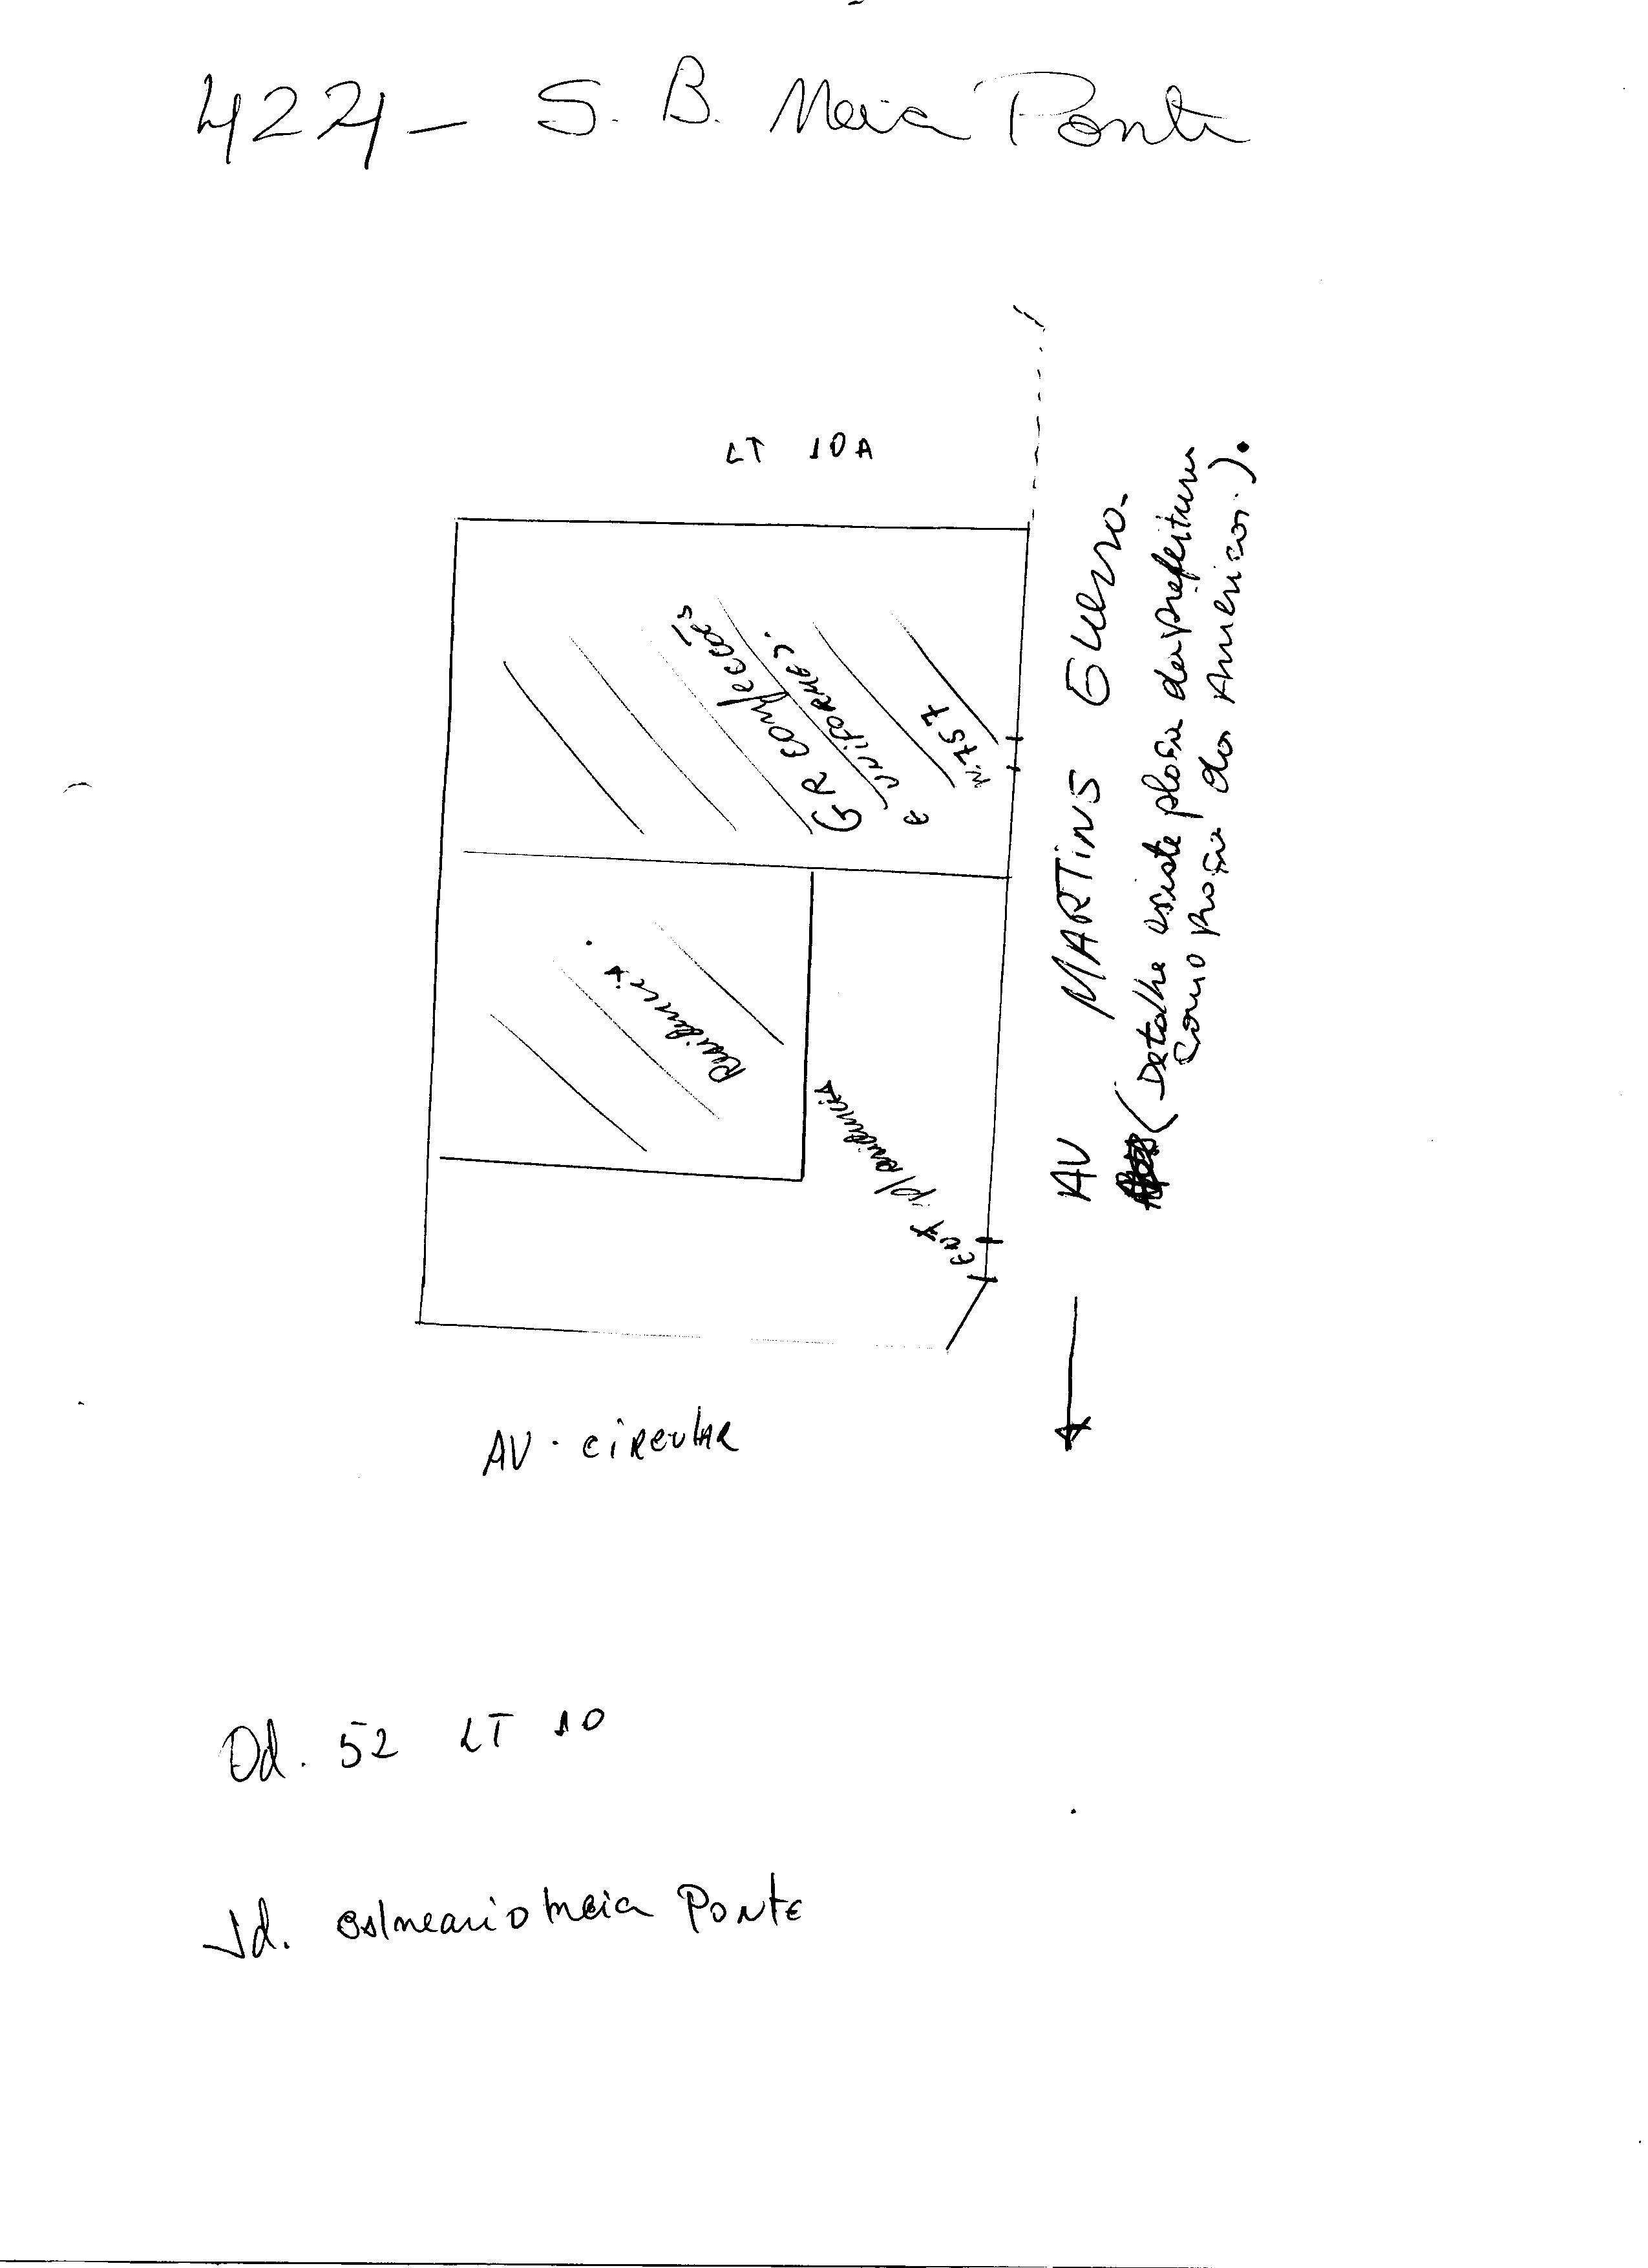 4224 - S. B. Meia Ponte
LT 10A
GR confecções
e UNIFORMES.
N. 757
Residencia
ent p/ residencia
AV MARTINS GUERRO.
(Detalhe existe placa da prefeitura
como
das Americas.).
AV. CIRCULAR
Qd. 52 LT 10
Jd. Balneario Meia Ponte